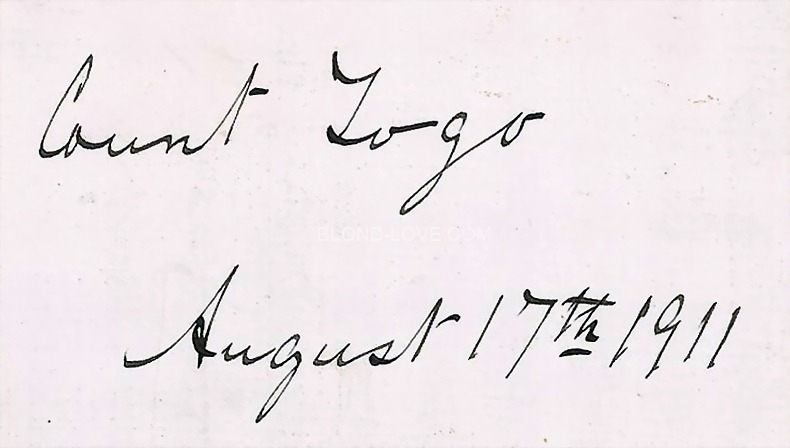 Count Togo
BLOND-LOVE.COM
August 17th 1911